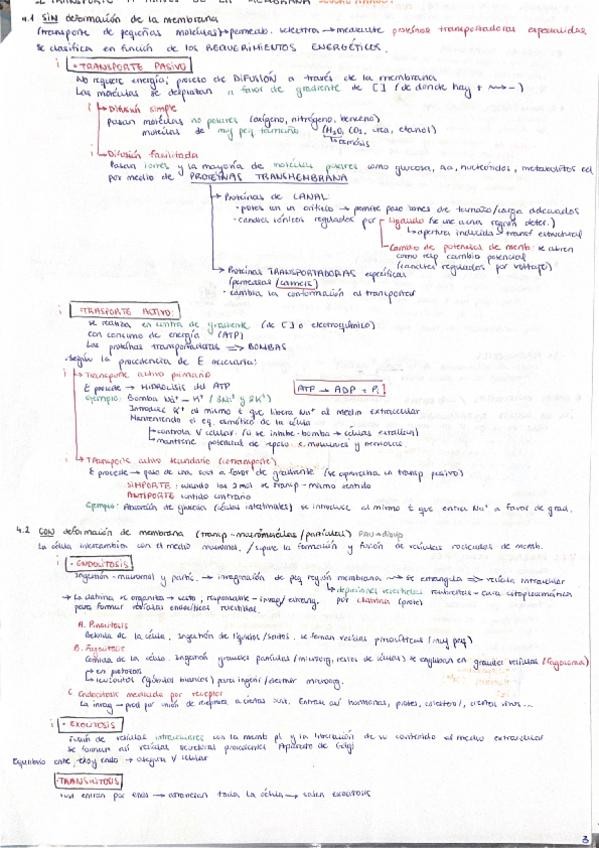 4.1 SIN deformación de la membrana
(transporte de pequeñas moléculas) → permeab. selectiva → mediante proteínas transportadoras especializadas
Se clasifica en función de los REQUERIMIENTOS ENERGÉTICOS.
· TRANSPORTE PASIVO
No requiere energía; proceso de DIFUSIÓN a través de la membrana
Las moléculas se desplazan a favor de gradiente de [ ] (de donde hay + → -)
Difusión simple
pasan moléculas no polares (oxígeno, nitrógeno, benceno)
moléculas de muy peq tamaño (H₂O, CO₂, urea, etanol)
↳ osmosis
Difusión facilitada
Pasan iones y la mayoría de moléculas polares como glucosa, aa, nucleótidos, metabolitos cel
por medio de PROTEÍNAS TRANSMEMBRANA
→ Proteínas de CANAL
· poros un orificio → permite paso iones de tamaño/carga adecuados
· canales iónicos regulados por Ligando (se une a una región deter.)
↳ apertura inducida → transf estructural
Cambio de potencial de memb: se abren
como resp cambio potencial
(canales regulados por voltaje)
→ Proteínas TRANSPORTADORAS específicas
(permeasas/carriers)
· cambia la conformación al transportar
· TRASPORTE ACTIVO:
se realiza en contra de gradiente (de [ ] o electroquímico)
con consumo de energía (ATP)
Las proteínas transportadoras ⇒ BOMBAS
Según la procedencia de E necesaria:
Transporte activo primario
E procede → HIDRÓLISIS del ATP
ATP → ADP + Pi
Ejemplo: Bomba Na⁺ - K⁺ (3Na⁺ y 2K⁺)
Introduce K⁺ al mismo t que libera Na⁺ al medio extracelular
Manteniendo el eq. osmótico de la célula
controla V celular (si se inhibe bomba → células estallan)
mantiene potencial de reposo c. musculares y nerviosas
Transporte activo secundario (cotransporte)
E procede → paso de una sust a favor de gradiente (se aprovecha en transp pasivo)
SIMPORTE: cuando los 2 mol se transp - mismo sentido
ANTIPORTE: sentido contrario
Ejemplo: Absorción de glucosa (células intestinales) se introduce al mismo t que entra Na⁺ a favor de grad.
4.2 CON deformación de membrana (transp - macromoléculas/partículas)
La célula intercambia con el medio macromol. /supone la formación y fusión de vesículas rodeadas de memb.
· ENDOCITOSIS
Ingestión - macromol y partíc. → invaginación de peq región membrana → se estrangula → vesícula intracelular
→ depresiones revestidas recubiertas - cara citoplasmática
→ La clatrina se organiza → cesto, responsable - invag/estrang. por clatrina (prote)
para formar vesículas endocíticas revestidas.
A. Pinocitosis
Bebida de la célula. Ingestión de líquidos/solutos. se forman vesículas pinocíticas (muy peq)
B. Fagocitosis
Comida de la célula. Ingestión grandes partículas (microorg, restos de células) se engloban en grandes vesículas (fagosoma)
↳ en protozoos
↳ leucocitos (glóbulos blancos) para ingerir/destruir microorg.
C. Endocitosis mediada por receptor
La invag - prod por unión de receptores a ciertas sust. Entran así hormonas, protes, colesterol, ciertos virus...
· EXOCITOSIS
Fusión de vesículas intracelulares con la memb pl y la liberación de su contenido al medio extracelular
Se forman así vesículas secretoras procedentes Aparato de Golgi
Equilibrio entre exo y endo → asegura V celular
· TRANSCITOSIS
sust entran por endo → atraviesan toda la célula → salen exocitosis
3